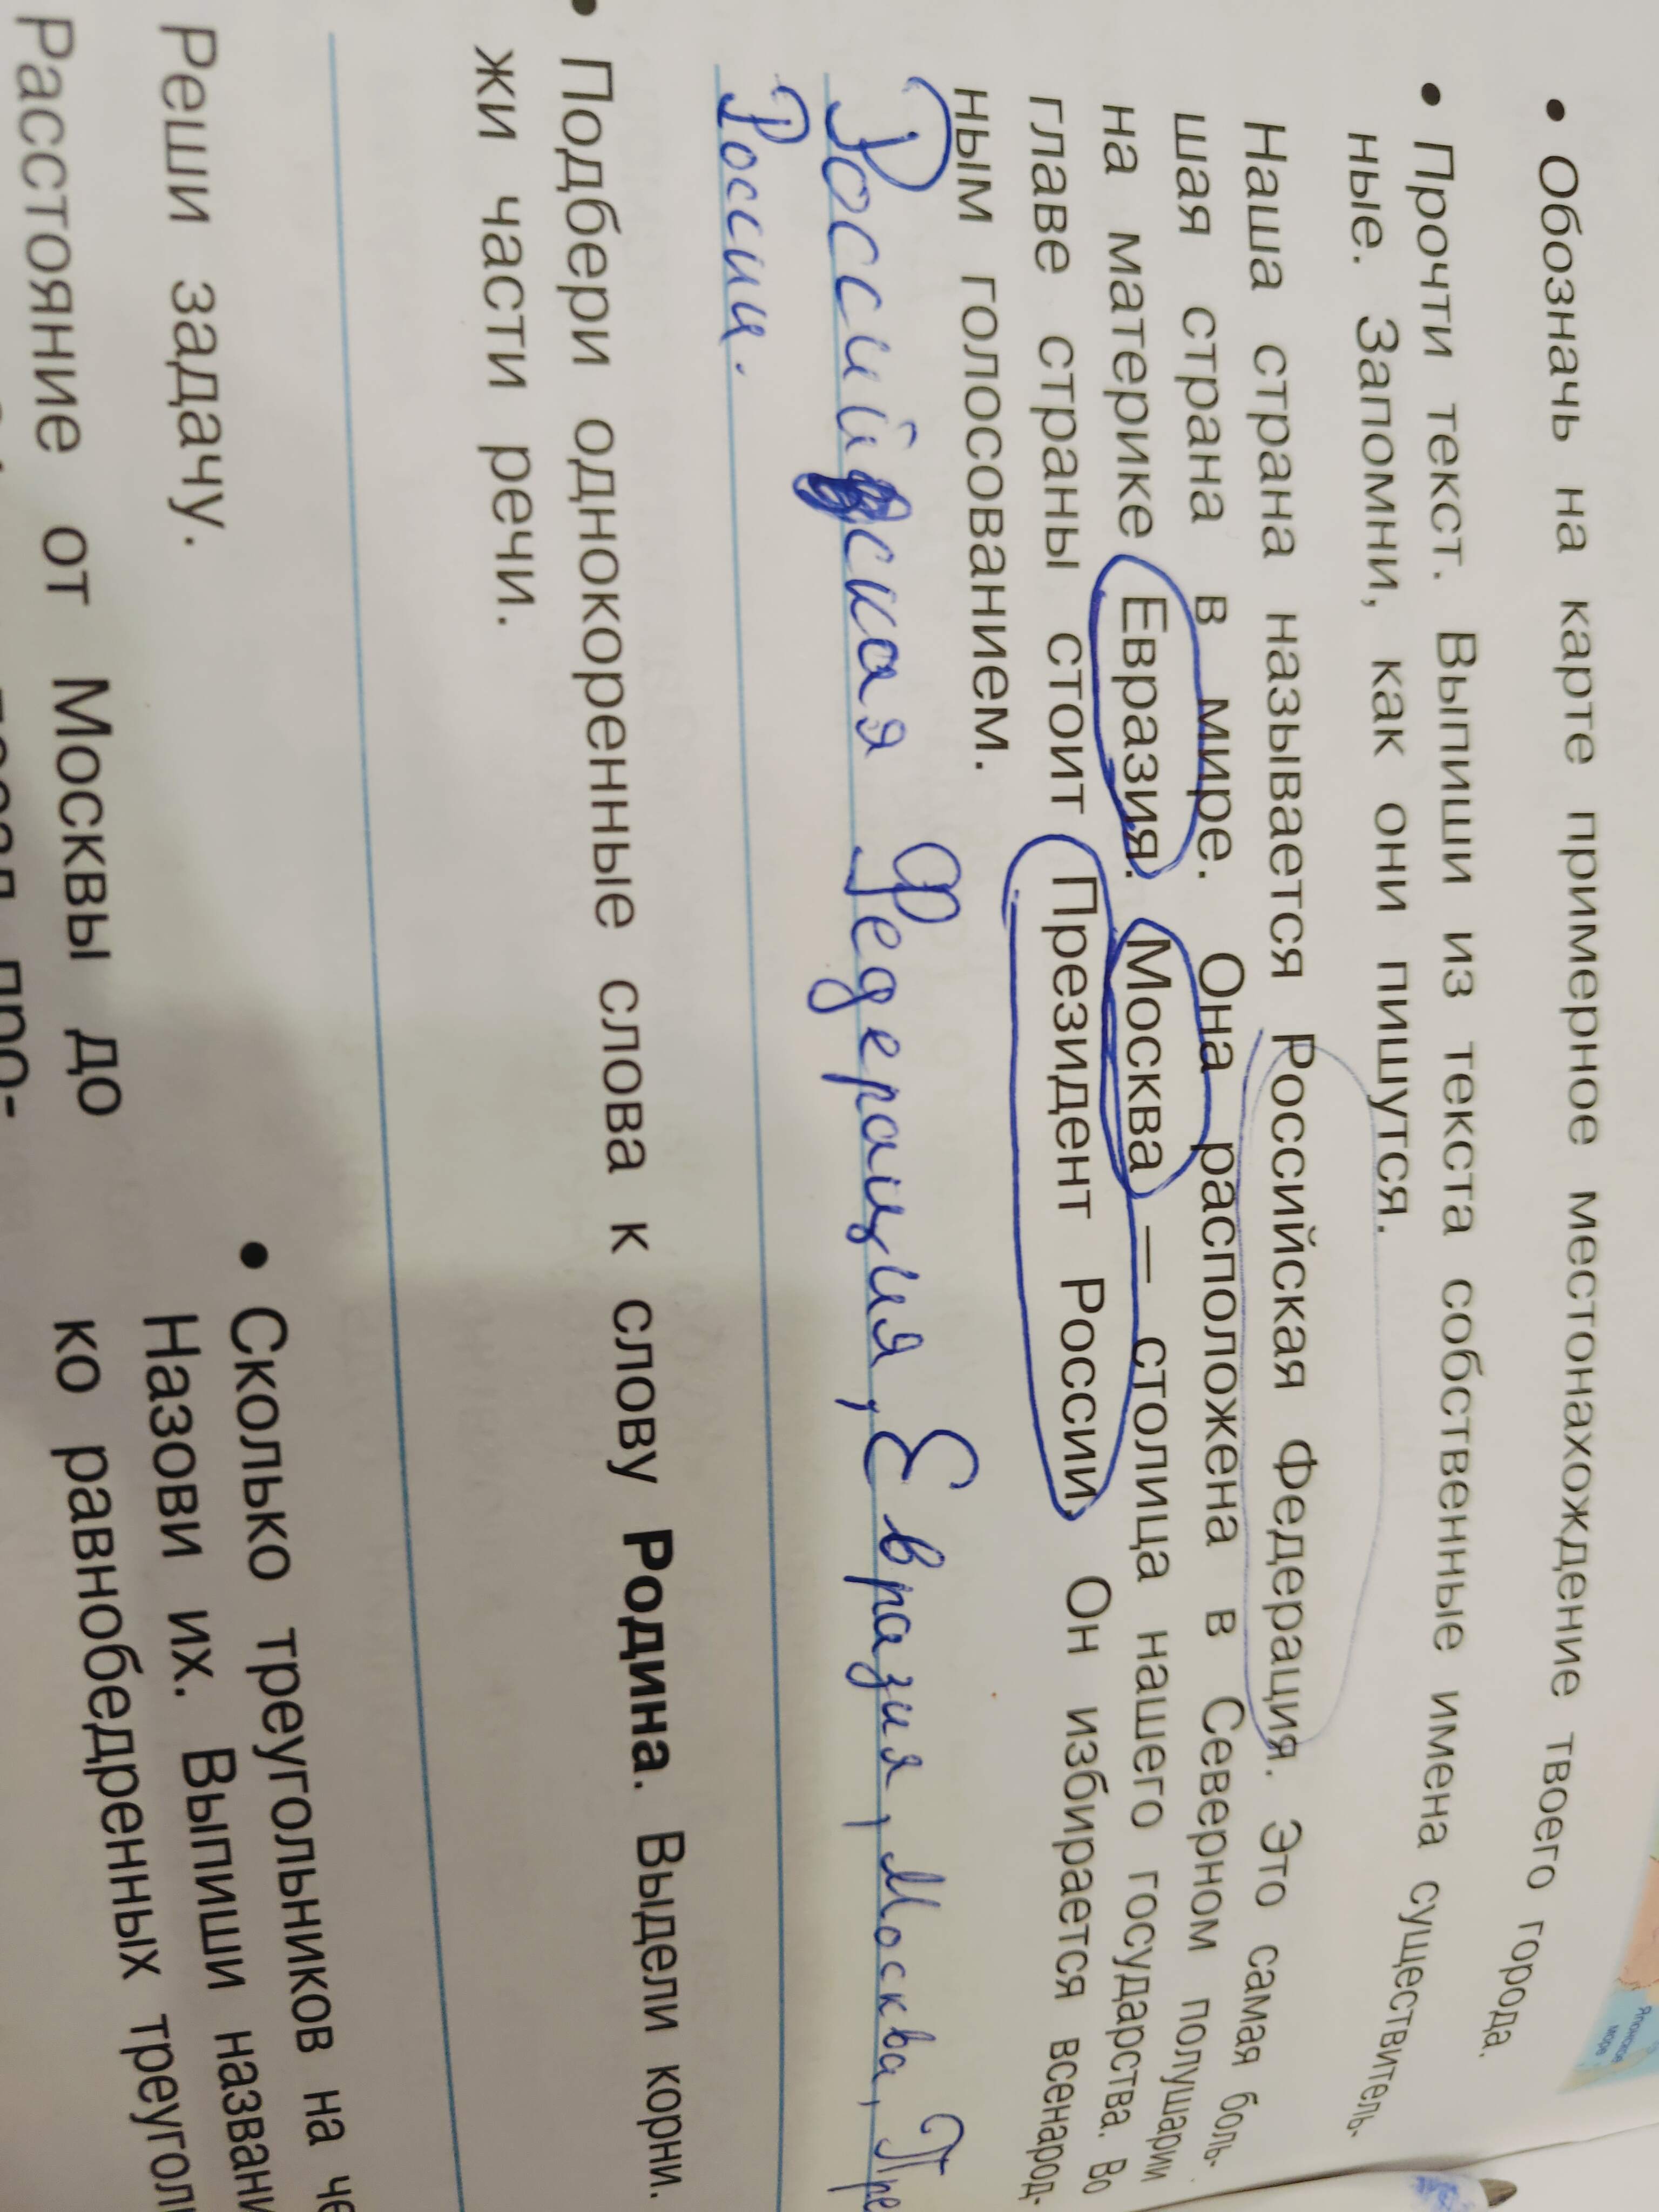 • Обозначь на карте примерное местонахождение твоего города.
• Прочти текст. Выпиши из текста собственные имена существитель-
ные. Запомни, как они пишутся.
Наша страна называется Российская Федерация. Это самая боль-
шая страна в мире. Она расположена в Северном полушарии
на материке Евразия. Москва — столица нашего государства. Во
главе страны стоит Президент России. Он избирается всенарод-
ным голосованием.
Российская Федерация, Евразия, Москва, Пре
России.
• Подбери однокоренные слова к слову Родина. Выдели корни.
жи части речи.
Реши задачу.
Расстояние от Москвы до
• Сколько треугольников на че
Назови их. Выпиши названи
ко равнобедренных треуголь
Японское
море